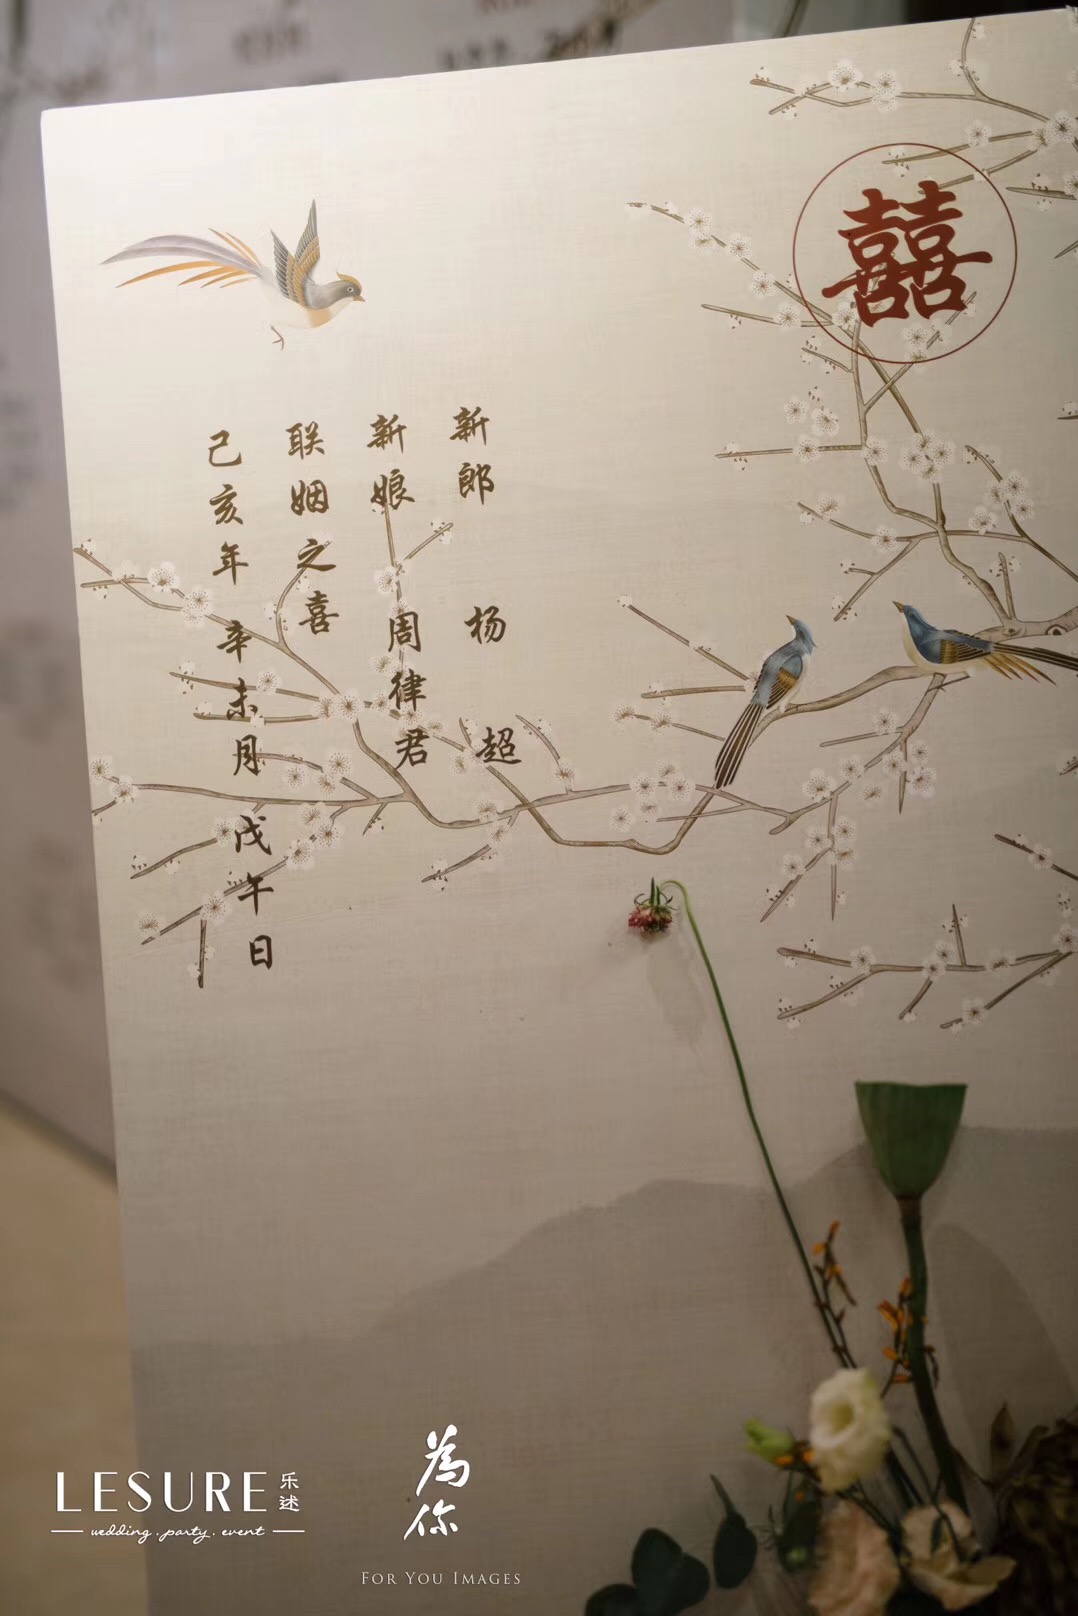 囍
新郎 杨 超
新娘 周律君
联姻之喜
己亥年 辛未月 戊午日
LESURE 乐述
wedding.party.event
為你
FOR YOU IMAGES